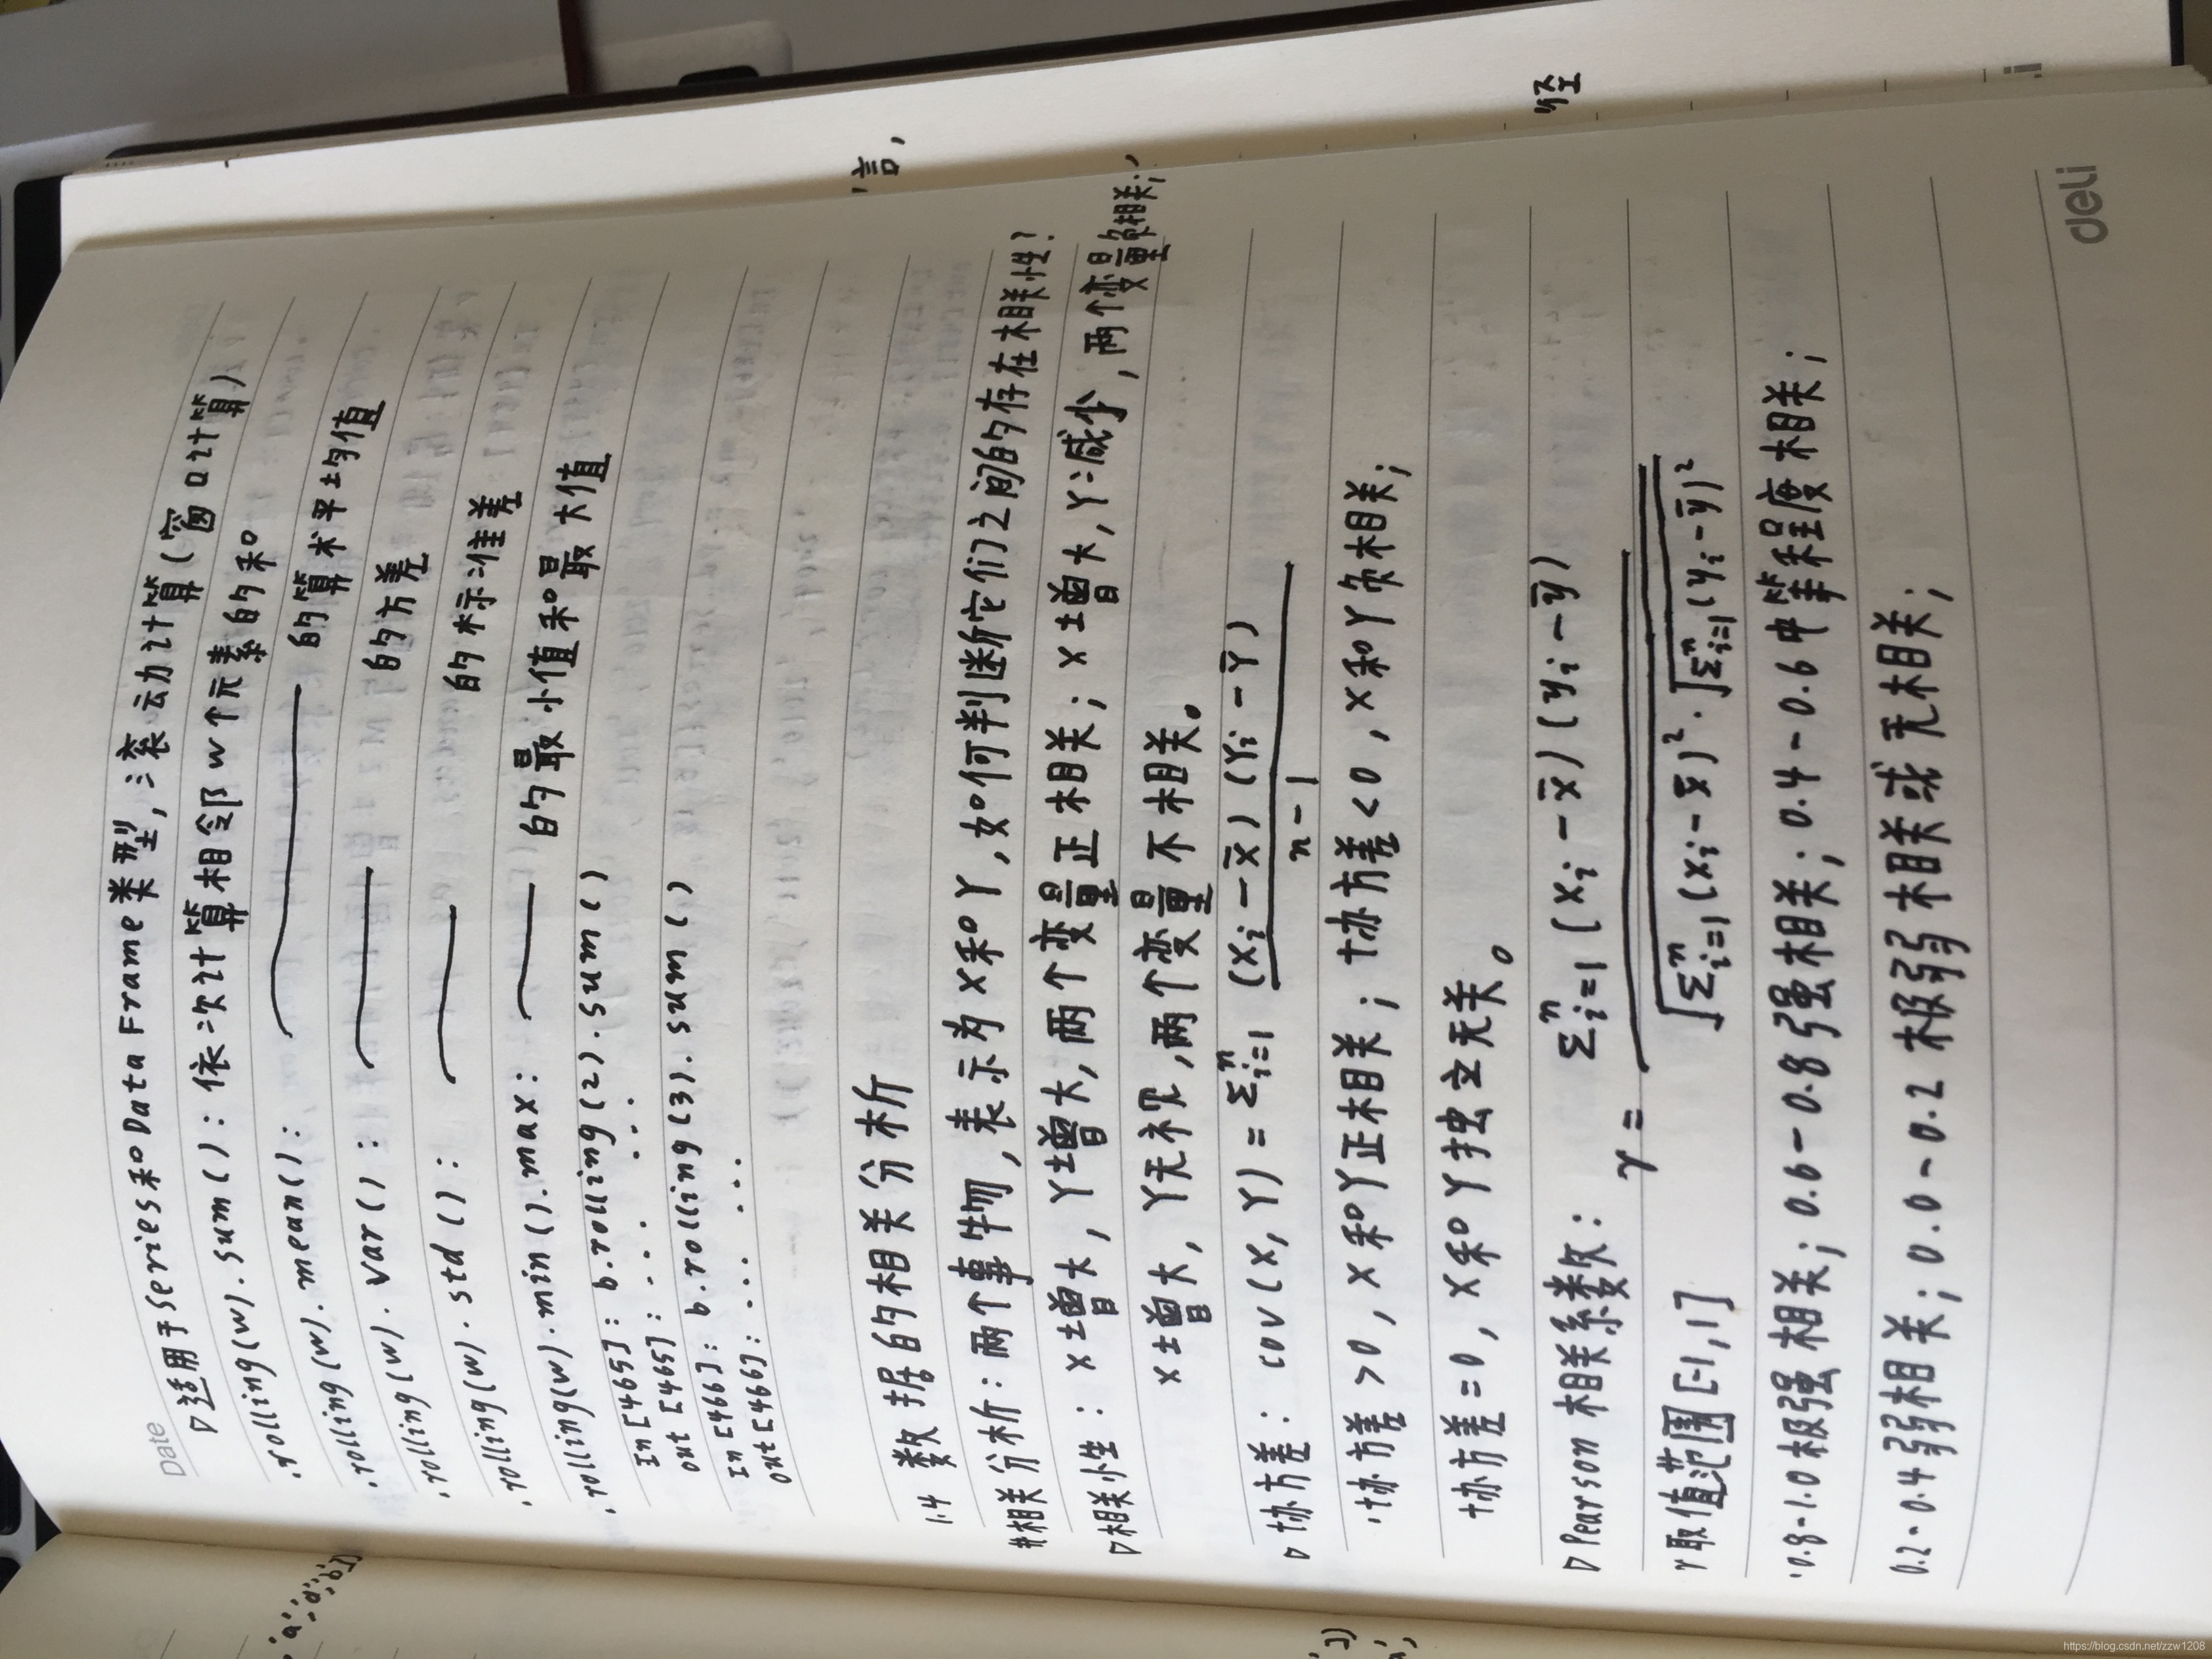 Date
▷适用于Series和DataFrame类型,滚动计算(窗口计算)
·.rolling(w).sum():依次计算相邻w个元素的和
·.rolling(w).mean(): 的算术平均值
·.rolling(w).var(): 的方差
·.rolling(w).std(): 的标准差
·.rolling(w).min().max: 的最小值和最大值
In[465]: b.rolling(2).sum()
out[465]: ... ...
In[466]: b.rolling(3).sum()
out[466]: ... ...
1.4 数据的相关分析
#相关分析:两个事物,表示为X和Y,如何判断它们之间的存在相关性?
▷相关性:X增大,Y增大,两个变量正相关;X增大,Y减少,两个变量负相关;
X增大,Y无视,两个变量不相关。
▷协方差: cov(X,Y)=Σⁿᵢ₌₁ (Xᵢ-X̄)(Yᵢ-Ȳ)
n-1
·协方差>0,X和Y正相关;协方差<0,X和Y负相关;
协方差=0,X和Y独立无关。
▷Pearson相关系数: Σⁿᵢ₌₁(xᵢ-x̄)(yᵢ-ȳ)
γ=
γ取值范围[-1,1] √Σⁿᵢ₌₁(xᵢ-x̄)²·√Σⁿᵢ₌₁(yᵢ-ȳ)²
·0.8-1.0极强相关;0.6-0.8强相关;0.4-0.6中等程度相关;
0.2-0.4弱相关;0.0-0.2极弱相关或无相关;
deli
https://blog.csdn.net/zzw1208